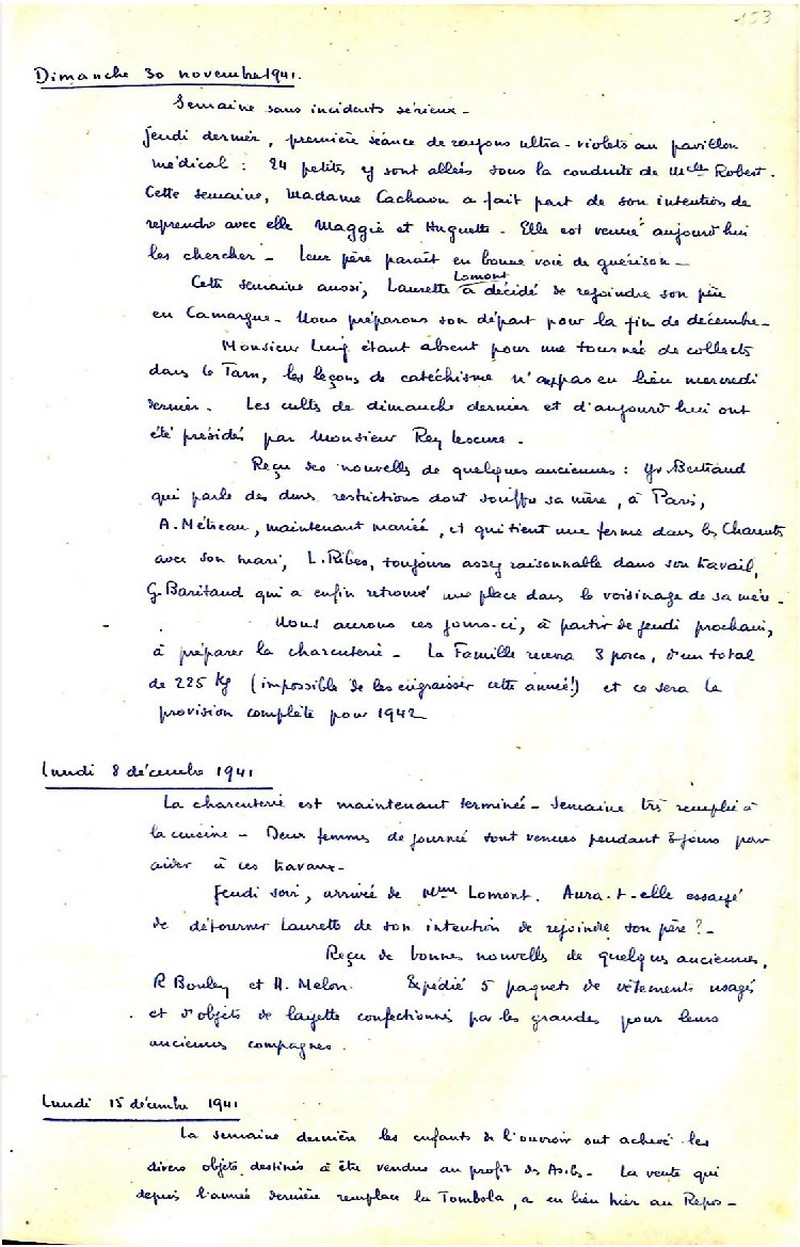 153
Dimanche 30 novembre 1941.
Semaine sans incidents sérieux -
Jeudi dernier, première séance de rayons ultra-violets au pavillon
médical : 24 petites y sont allées sous la conduite de Melle Robert.
Cette semaine, Madame Cachaon a fait part de son intention de
reprendre avec elle Maggie et Huguette - Elle est venue aujourd'hui
les chercher - Leur père paraît en bonne voie de guérison -
Cette semaine aussi, Laurette Lomont a décidé de rejoindre son père
en Camargue - Nous préparons son départ pour la fin de décembre -
Monsieur Luigi étant absent pour une tournée de collecte
dans le Tarn, les leçons de catéchisme n'ont pas eu lieu mercredi
dernier. Les cultes de dimanche dernier et d'aujourd'hui ont
été présidés par Monsieur Rey Lescure.
Reçu des nouvelles de quelques anciennes : Yv. Bertrand
qui parle des dures restrictions dont souffre sa mère, à Paris,
A. Métreau, maintenant mariée, et qui tient une ferme dans les Charentes
avec son mari, L. Ribes, toujours assez raisonnable dans son travail,
G. Baritaud qui a enfin retrouvé une place dans le voisinage de sa mère -
Nous aurons ces jours-ci, à partir de jeudi prochain,
à préparer la charcuterie - La Famille recevra 3 porcs, d'un total
de 225 Kg (impossible de les engraisser cette année!) et ce sera la
provision complète pour 1942
Lundi 8 décembre 1941
La charcuterie est maintenant terminée - Semaine très remplie à
la cuisine - Deux femmes de journée sont venues pendant 3 jours pour
aider à ces travaux -
Jeudi soir, arrivée de Mme Lomont. Aura-t-elle essayé
de détourner Laurette de son intention de rejoindre son père ? -
Reçu de bonnes nouvelles de quelques anciennes,
R Bouley et H. Melon. Expédié 5 paquets de vêtements usagés
et d'objets de layette confectionnés par les grandes pour leurs
anciennes compagnes.
Lundi 15 décembre 1941
La semaine dernière les enfants de l'ouvroir ont achevé les
divers objets destinés à être vendus au profit des Asiles - La vente qui
depuis l'année dernière remplace la Tombola, a eu lieu hier au Repos -